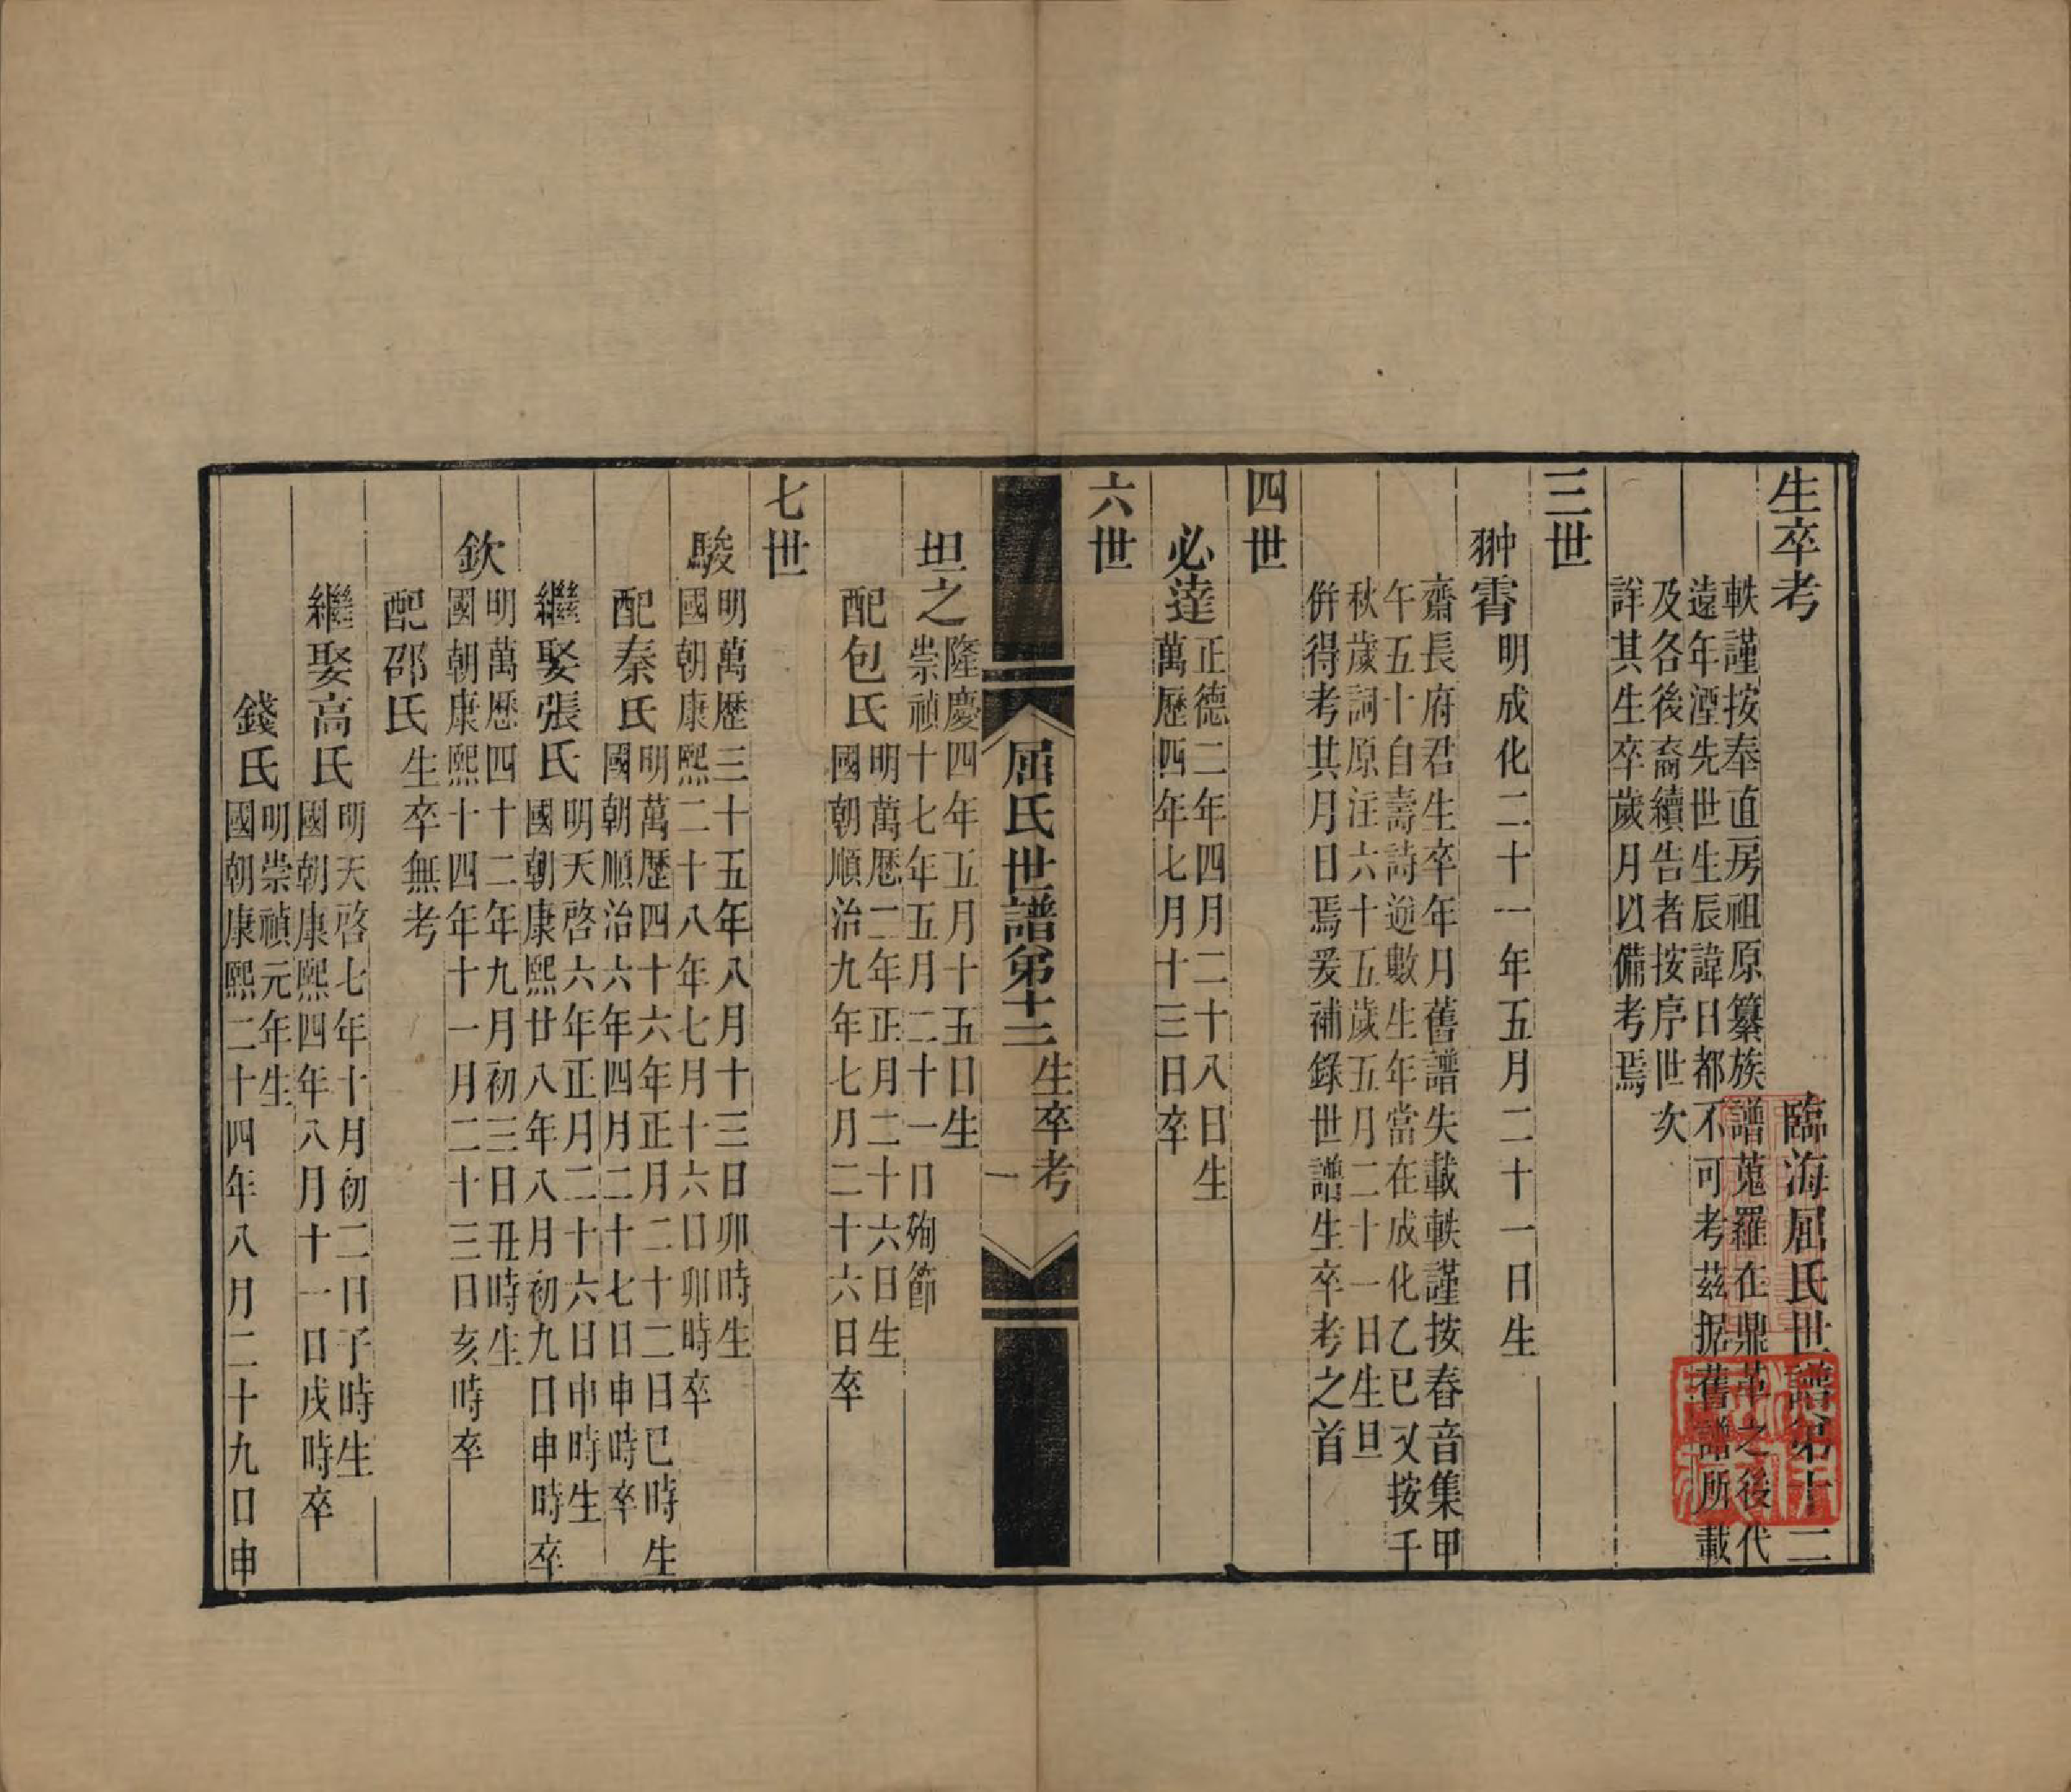 生卒考　臨海屈氏世譜第十二
軼謹按奉直房祖原纂族譜蒐羅在鼎革之後代
遠年湮先世生辰諱日都不可考茲据舊譜所載
及各後裔續告者按序世次
詳其生卒歲月以備考焉
三世
翀霄
明成化二十一年五月二十一日生
齋長府君生卒年月舊譜失載軼謹按春音集甲
午五十自壽詩逆數生年當在成化乙巳又按千
秋歲詞原注六十五歲五月二十一日生旦
併得考其月日焉爰補錄世譜生卒考之首
四世
必達
正德二年四月二十八日生
萬歷四年七月十三日卒
六世
屈氏世譜弟十二　生卒考　一
坦之
隆慶四年五月十五日生
崇禎十七年五月二十一日殉節
配包氏
明萬歷二年正月二十六日生
國朝順治九年七月二十六日卒
七世
駿
明萬歷三十五年八月十三日卯時生
國朝康熙二十八年七月十六日卯時卒
配秦氏
明萬歷四十六年正月二十二日巳時生
國朝順治六年四月二十七日申時卒
繼娶張氏
明天啓六年正月二十六日申時生
國朝康熙廿八年八月初九日申時卒
欽
明萬歷四十二年九月初三日丑時生
國朝康熙十四年十一月二十三日亥時卒
配邵氏
生卒無考
繼娶高氏
明天啓七年十月初二日子時生
國朝康熙四年八月十一日戌時卒
錢氏
明崇禎元年生
國朝康熙二十四年八月二十九日申